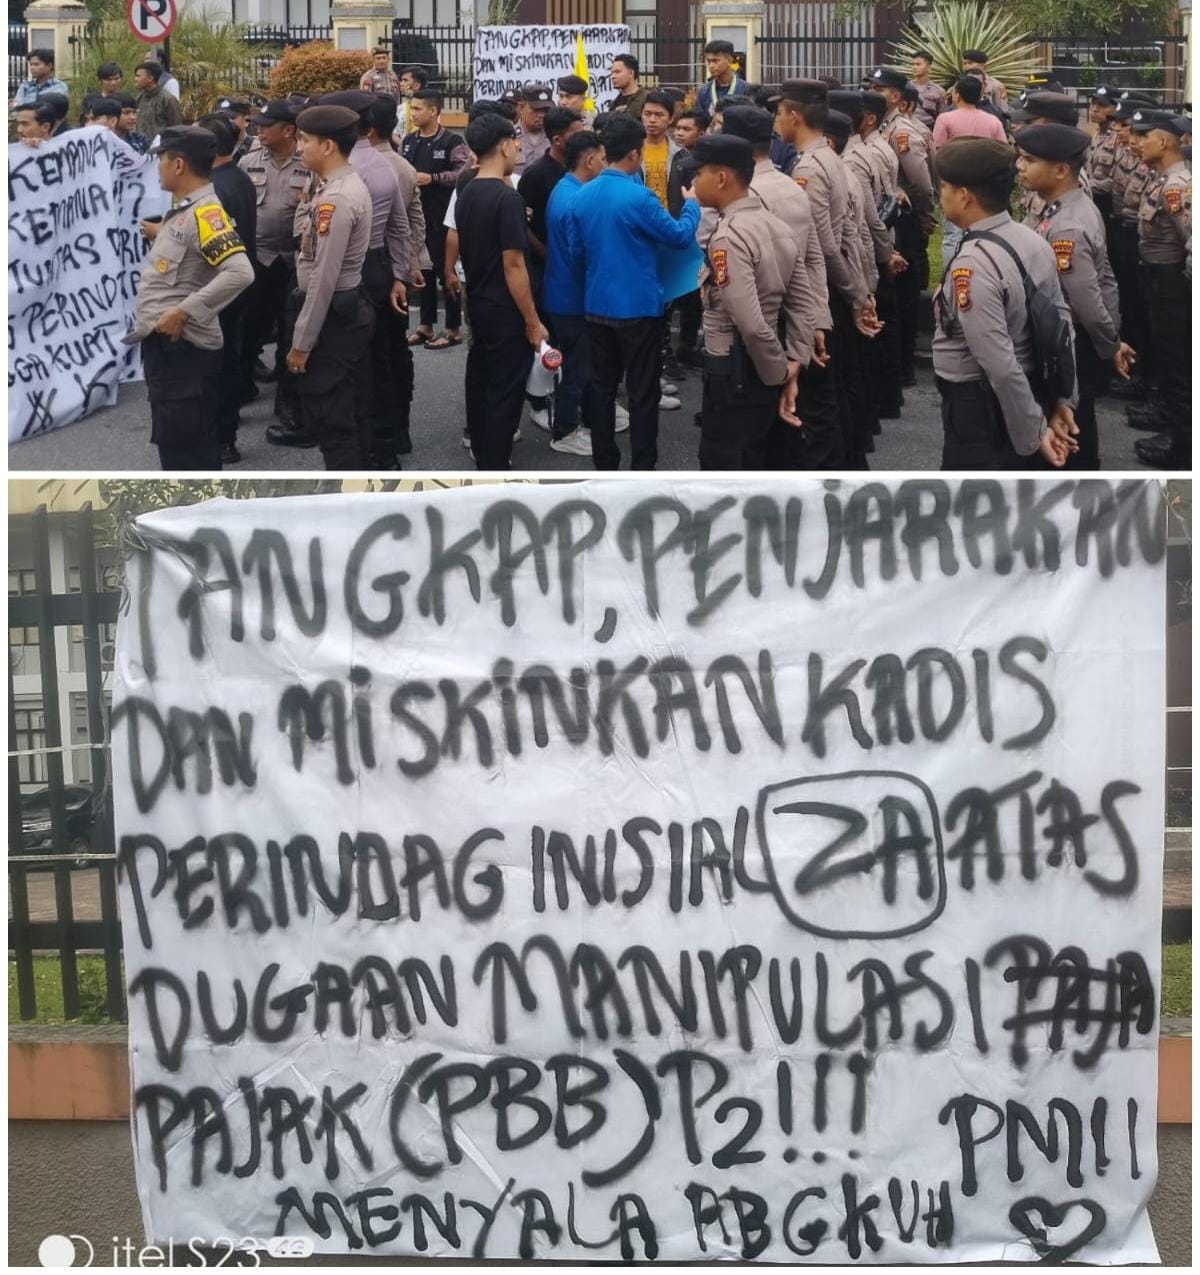 TANGKAP, PENJARAKAN
DAN MISKINKAN KADIS
PERINDAG INISIAL ZA ATAS
KEMANA
KEMANA ??
GGA KUAT
TANGKAP, PENJARAKAN
DAN MiSKINKAN KADIS
PERINDAG INISIAL ZA ATAS
DUGAAN MANIPULASI PAJA
PAJAK (PBB) P2!!!
PMII
MENYALA ABGKUH
itel S23 4G